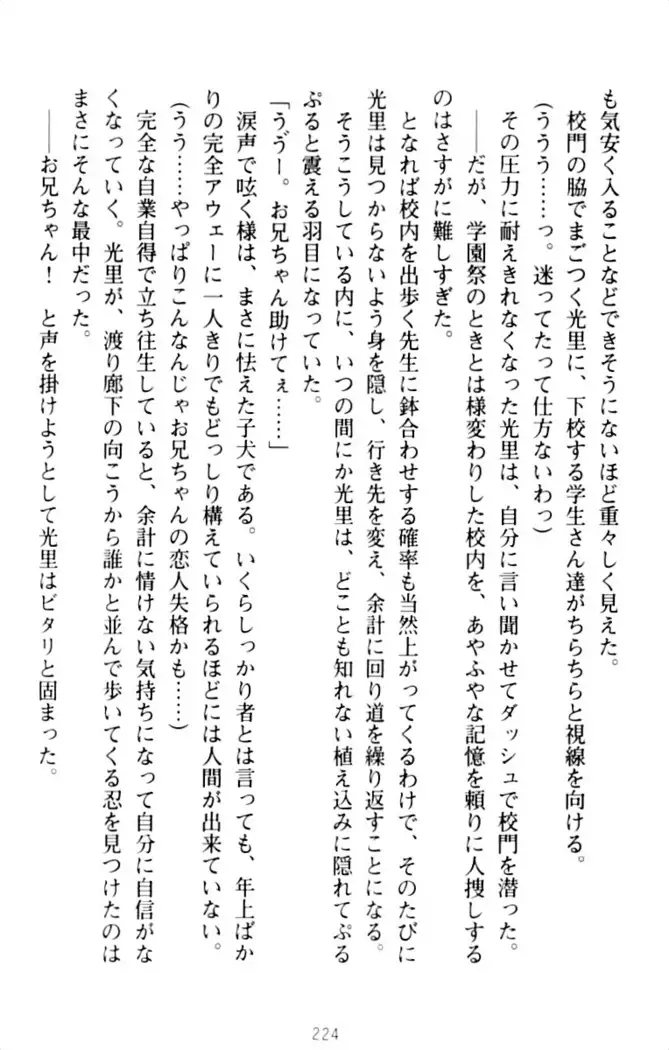 も気安く入ることなどできそうにないほど重々しく見えた。
校門の脇でまごつく光里に、下校する学生さん達がちらちらと視線を向ける。
(ううう……っ。迷ってたって仕方ないわっ)
その圧力に耐えきれなくなった光里は、自分に言い聞かせてダッシュで校門を潜った。
――だが、学園祭のときとは様変わりした校内を、あやふやな記憶を頼りに人捜しする
のはさすがに難しすぎた。
となれば校内を出歩く先生に鉢合わせする確率も当然上がってくるわけで、そのたびに
光里は見つからないよう身を隠し、行き先を変え、余計に回り道を繰り返すことになる。
そうこうしている内に、いつの間にか光里は、どことも知れない植え込みに隠れてぷる
ぷると震える羽目になっていた。
「うゔー。お兄ちゃん助けてぇ……」
涙声で呟く様は、まさに怯えた子犬である。いくらしっかり者とは言っても、年上ばか
りの完全アウェーに一人きりでもどっしり構えていられるほどには人間が出来ていない。
(うう……やっぱりこんなんじゃお兄ちゃんの恋人失格かも……)
完全な自業自得で立ち往生していると、余計に情けない気持ちになって自分に自信がな
くなっていく。光里が、渡り廊下の向こうから誰かと並んで歩いてくる忍を見つけたのは
まさにそんな最中だった。
――お兄ちゃん！　と声を掛けようとして光里はビタリと固まった。
224